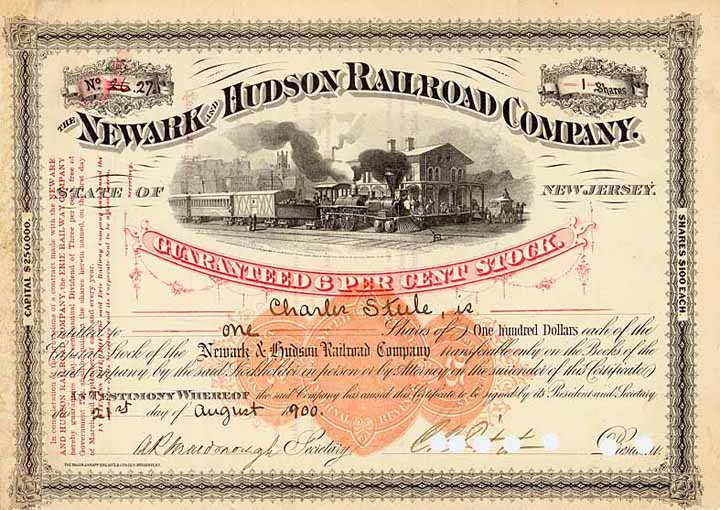 No 26. 27
1 Shares
THE NEWARK AND HUDSON RAILROAD COMPANY.
STATE OF NEW JERSEY.
GUARANTEED 6 PER CENT STOCK.
CAPITAL $250,000.
SHARES $100 EACH
In consideration of the provisions of a contract made with the NEWARK
AND HUDSON RAILROAD COMPANY, the ERIE RAILWAY COMPANY
hereby guarantees Semi-annual Dividend of Three per cent free of
Government Tax
on the shares herein named, on the first day
of March and September in each and every year.
Charles Steele, is
Entitled to one Shares of One hundred Dollars each of the
Capital Stock of the Newark & Hudson Railroad Company transferable only on the Books of the
Company by the said Stockholder in person or by Attorney on the surrender of this Certificate
IN TESTIMONY WHEREOF the said Company has caused this Certificate to be signed by its President and Secretary
the 21st day of August 1900.
Secretary
President